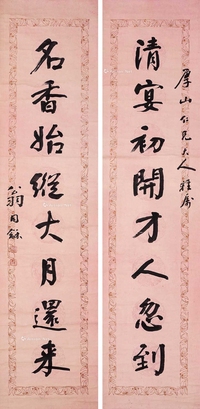 厚山仁兄大人雅属
清宴初開才人忽到
名香始縱大月還来
翁同龢